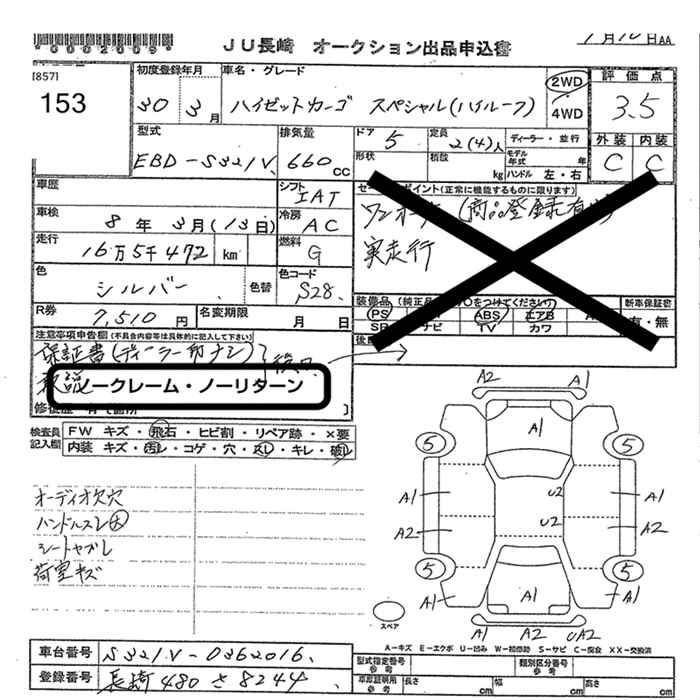 *0002009*
JU長崎 オークション出品申込書
月 日AA
[857]
153
初度登録年月
30 3月
車名・グレード
ハイゼットカーゴ スペシャル(ハイルーフ)
2WD
4WD
評価点
3.5
外装 内装
C C
型式
EBD-S321V
排気量
660cc
ドア
5
定員
2(4)人
ディーラー・並行
形状
積載
kg
モデル年式 年
ハンドル 左・右
車歴
シフト
IAT
車検
8年3月(13日)
冷房
AC
走行
16万5千472 km
燃料
G
色
シルバー
色替
色コード
S28
R券
7,510円
名変期限
月 日
ポイント(正常に機能するものに限ります)
ワンオーナー(商品登録有
実走行
装備品(純正品 ○をつけてください)
新車保証書
有・無
PS ABS エアB
ナビ TV カワ
注意事項申告欄(不具合内容等は具体的に記入して下さい)
保証書(ディーラー印ナシ)
ノークレーム・ノーリターン
検査員記入欄
FW キズ・飛石・ヒビ割・リペア跡・×要
内装 キズ・汚れ・コゲ・穴・スレ・キレ・破れ
オーディオ欠穴
ハンドルスレ大
シートヤブレ
荷室キズ
A2 A1
A1
5 5
A1 U2 A1
A2 U2 A2
5 5
A1 A1 A1
スペア
A1 A2 UA2
A-キズ E-エクボ U-凹み W-補修跡 S-サビ C-腐食 XX-交換済
車台番号
S321V-0362016
登録番号
長崎480さ8244
型式指定番号
参考
類別区分番号
参考
車庫証明用
参考
長さ cm
幅 cm
高さ cm